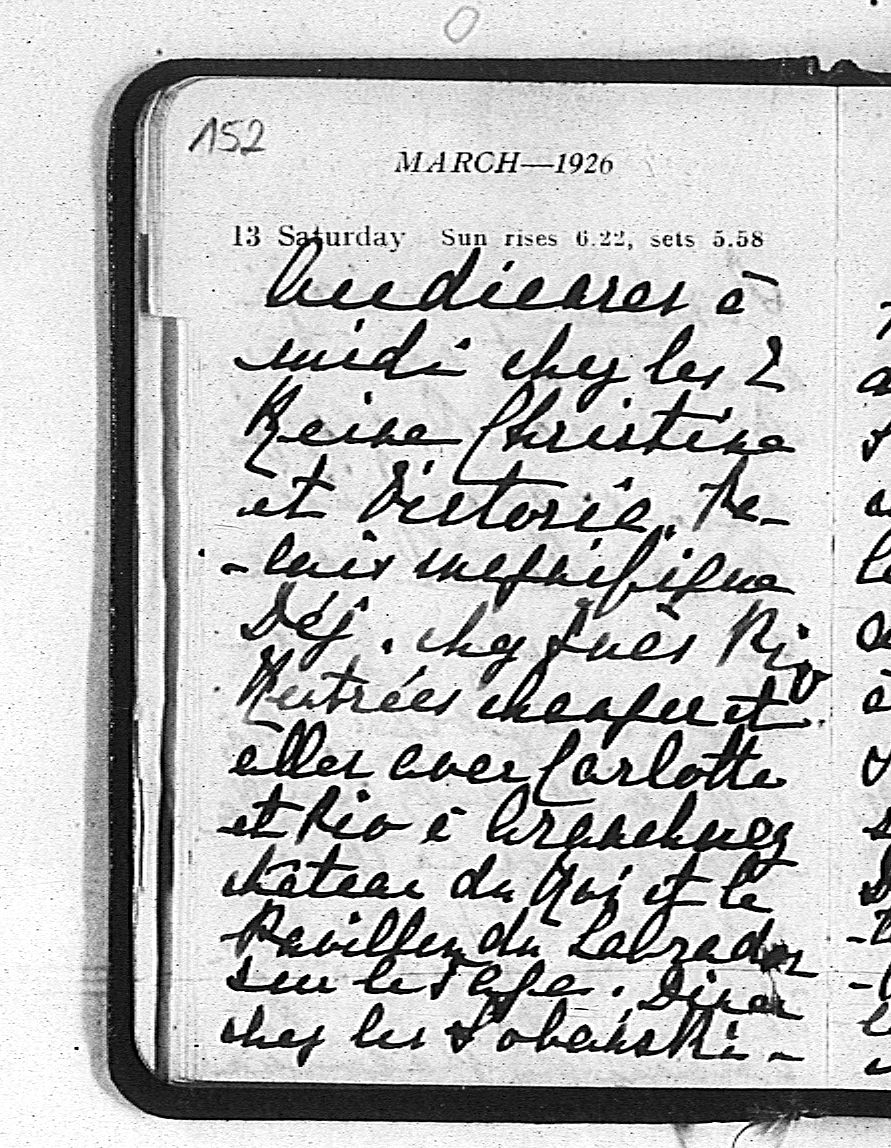 152
MARCH—1926
13 Saturday Sun rises 6.22, sets 5.58
Audiences à
midi chez les 2
Reine Christine
et Victoria. Pa-
-lais magnifique
Déj. chez Inès
Rentrées et
allés avec Carlotta
et Rio à Aranchuez
château du Roi et le
Pavillon du Labrador
sur le Tage. Diner
chez les Sobanski -